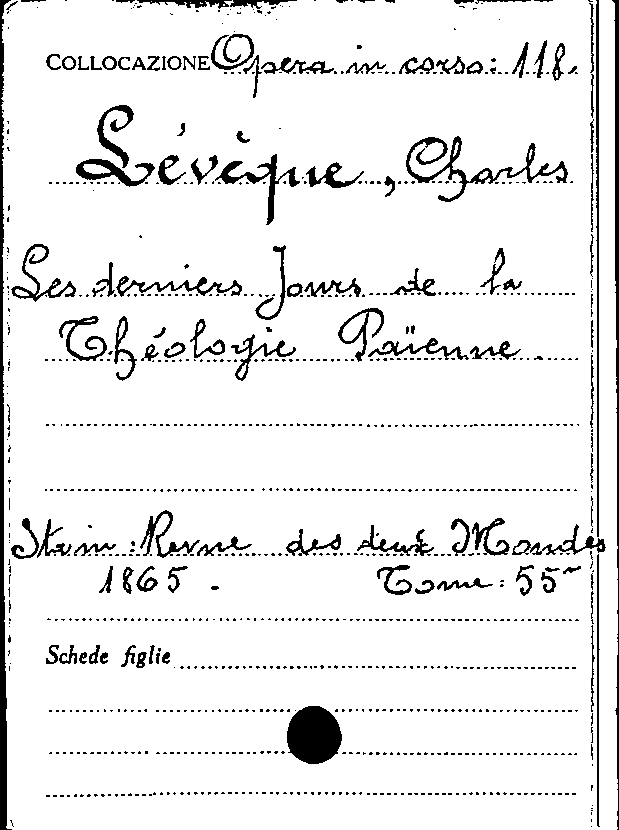 COLLOCAZIONE Opera in corso: 118.
Lévèque, Charles
Les derniers Jours de la
Théologie Païenne.
Sta in: Revue des deux Mondes
1865. Tome: 55
Schede figlie